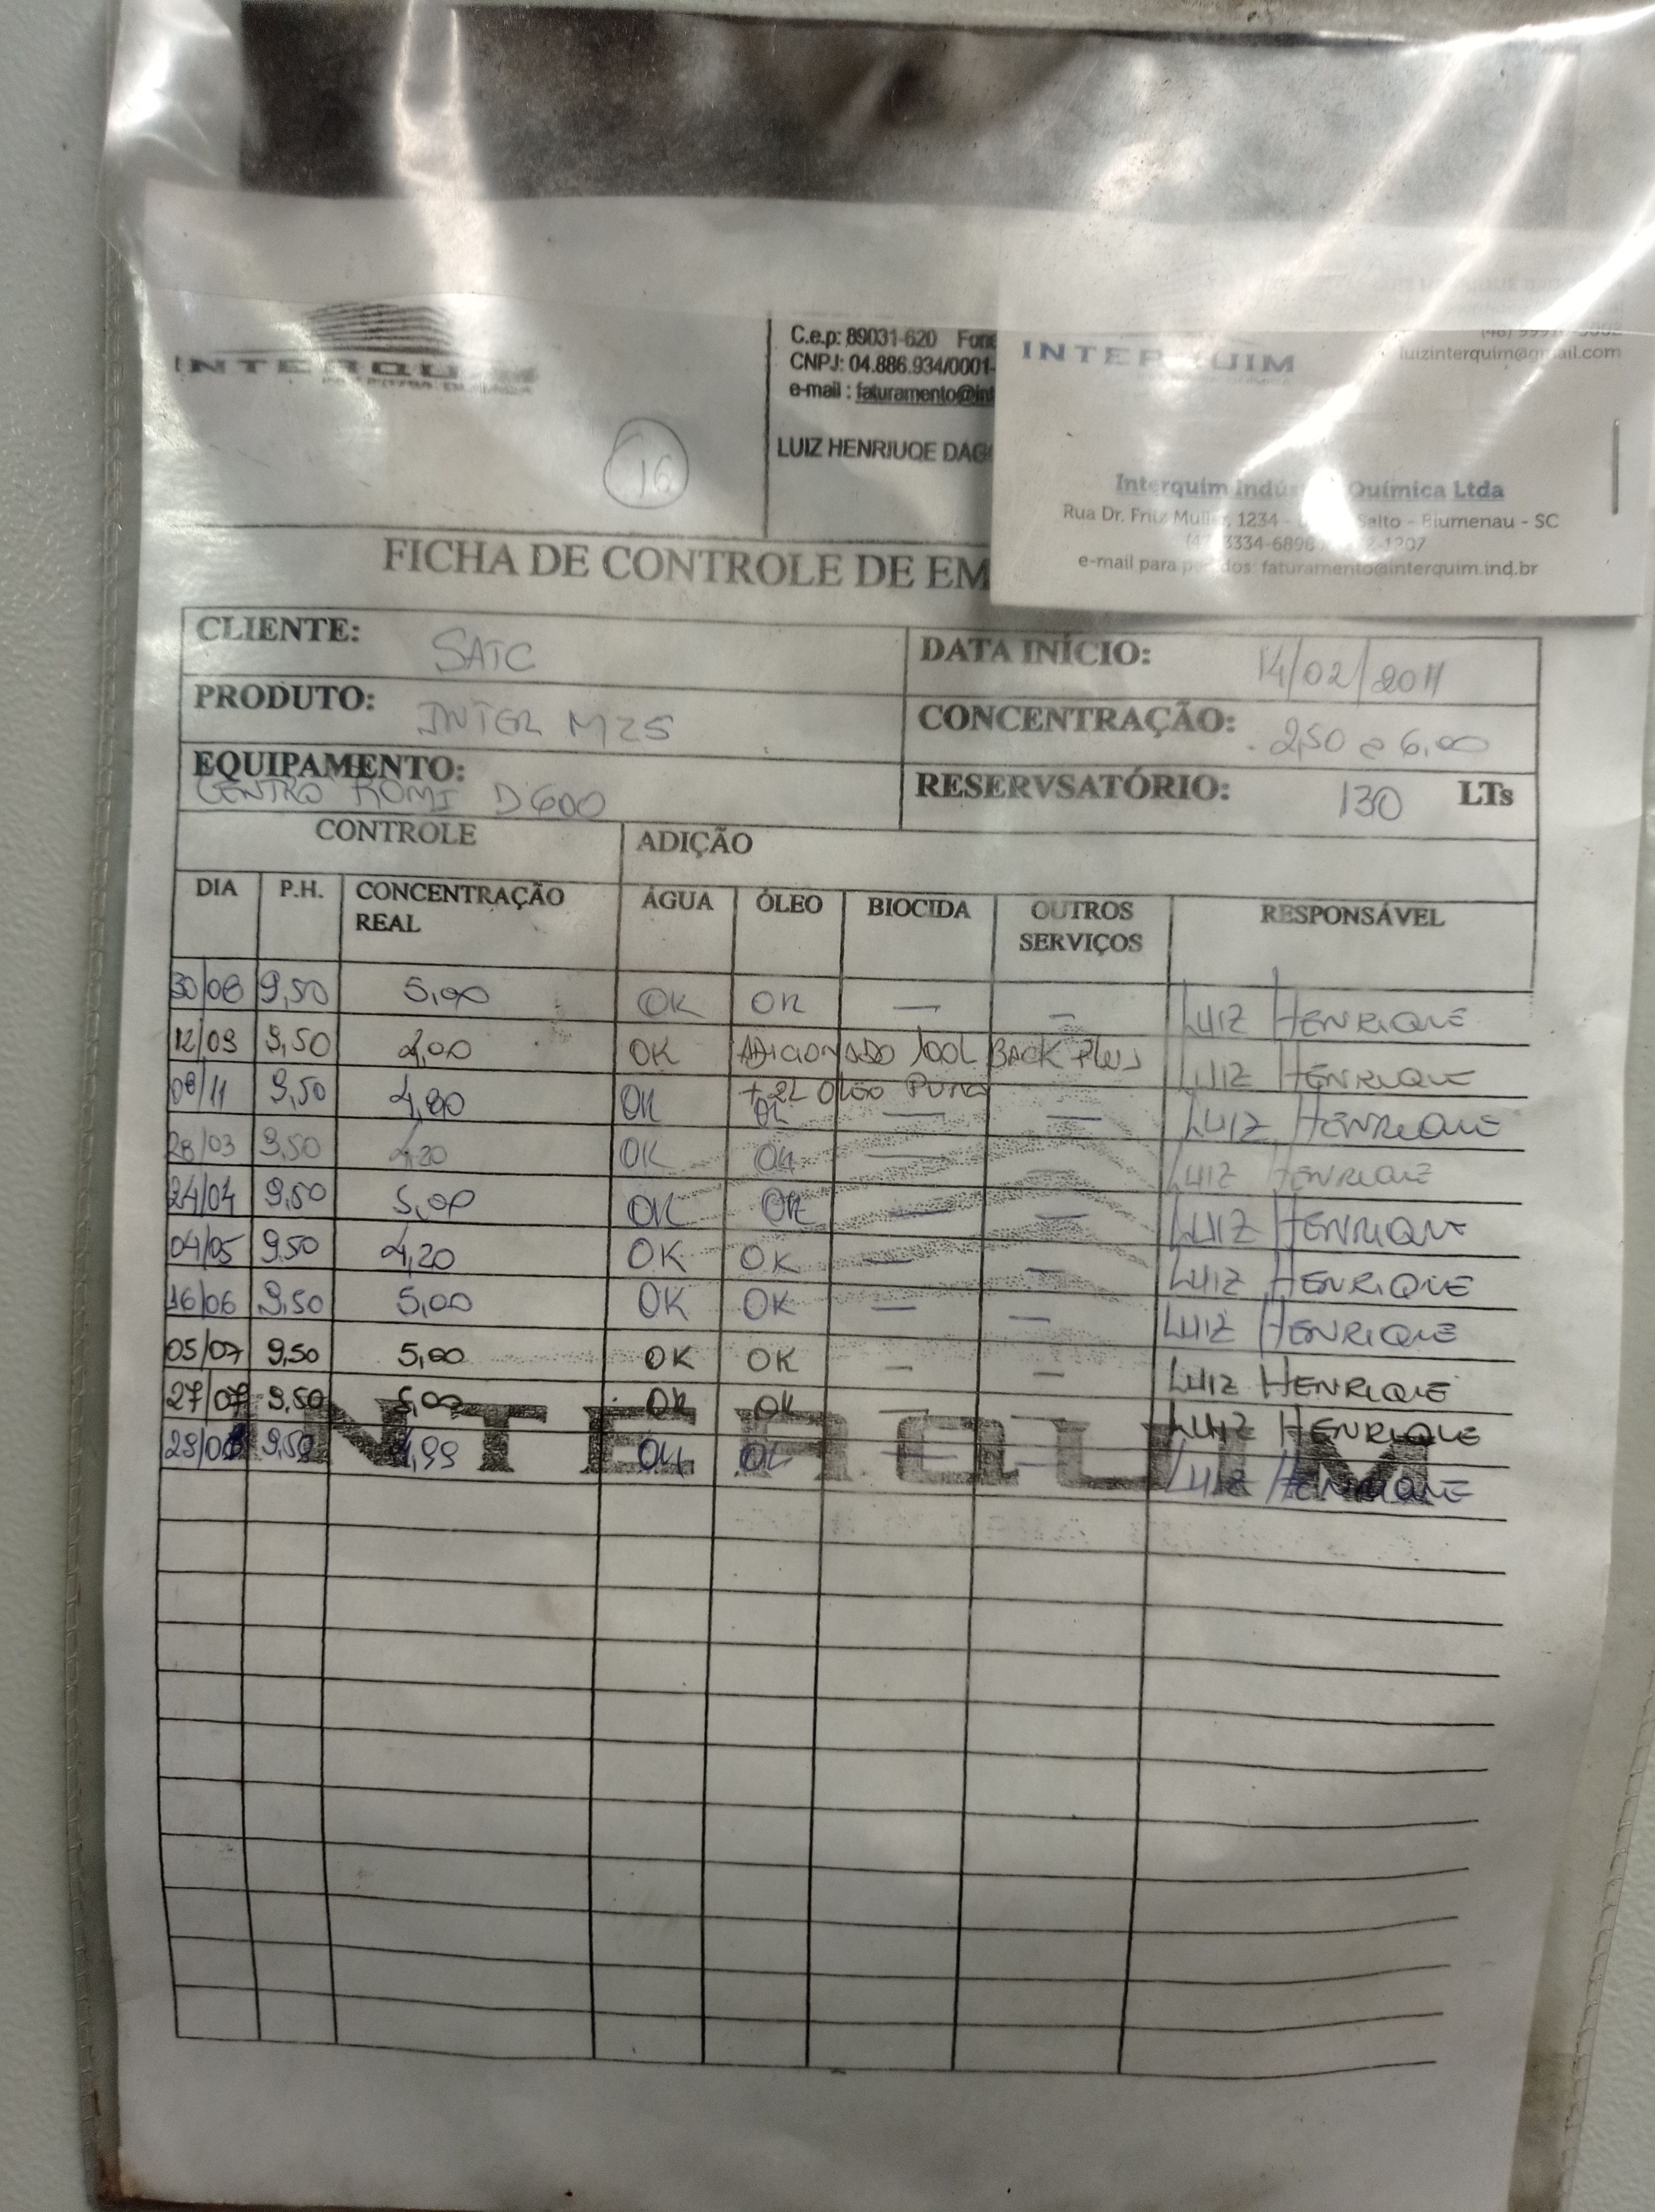 INTERQUIM
16
C.e.p: 89031-620 Fone
CNPJ: 04.886.934/0001-
e-mail : faturamento@int
LUIZ HENRIUQE DAG
INTERQUIM
luizinterquim@gmail.com
Interquim Indús Química Ltda
Rua Dr. Fritz Muller, 1234 - Salto - Blumenau - SC
3334-6896 2-1207
e-mail para pedidos: faturamento@interquim.ind.br
FICHA DE CONTROLE DE EM
CLIENTE: SATC DATA INÍCIO: 14/02/2011
PRODUTO: INTER M25 CONCENTRAÇÃO: 2,50 a 6,00
EQUIPAMENTO: CENTRO ROMI D600 RESERVSATÓRIO: 130 LTs
CONTROLE ADIÇÃO
DIA P.H. CONCENTRAÇÃO REAL ÁGUA ÓLEO BIOCIDA OUTROS SERVIÇOS RESPONSÁVEL
30/08 9,50 5,00 OK OK — — LUIZ HENRIQUE
12/09 9,50 2,00 OK ADICIONADO 100L BACK PLUS LUIZ HENRIQUE
+ 2L OLEO PURO
08/11 9,50 4,80 OK OK — — LUIZ HENRIQUE
28/03 9,50 4,20 OK OK — — LUIZ HENRIQUE
24/04 9,50 5,00 OK OK — — LUIZ HENRIQUE
04/05 9,50 4,20 OK OK — — LUIZ HENRIQUE
16/06 9,50 5,00 OK OK — — LUIZ HENRIQUE
05/07 9,50 5,00 OK OK — — LUIZ HENRIQUE
27/07 9,50 5,00 OK OK — — LUIZ HENRIQUE
29/08 9,50 4,99 OK OK — — LUIZ HENRIQUE
INTERQUIM